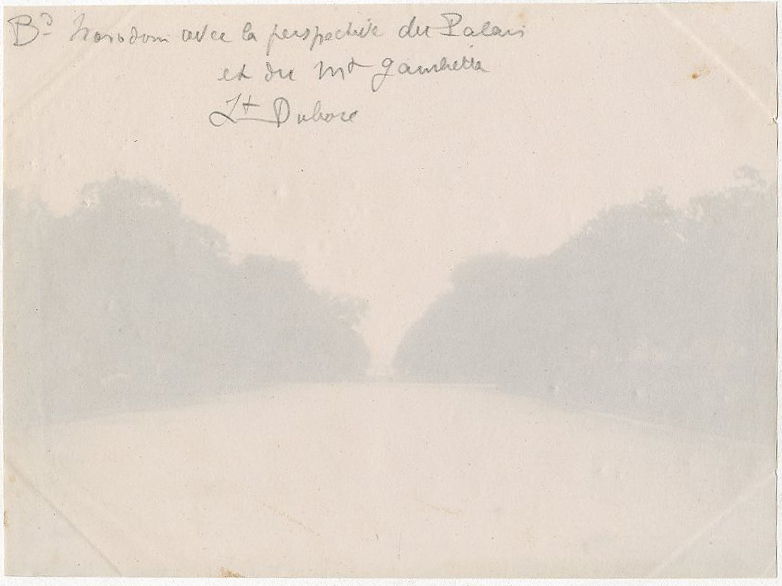 Bd Norodom avec la perspective du Palais
et du Mt Gambetta
Lt Dubosc